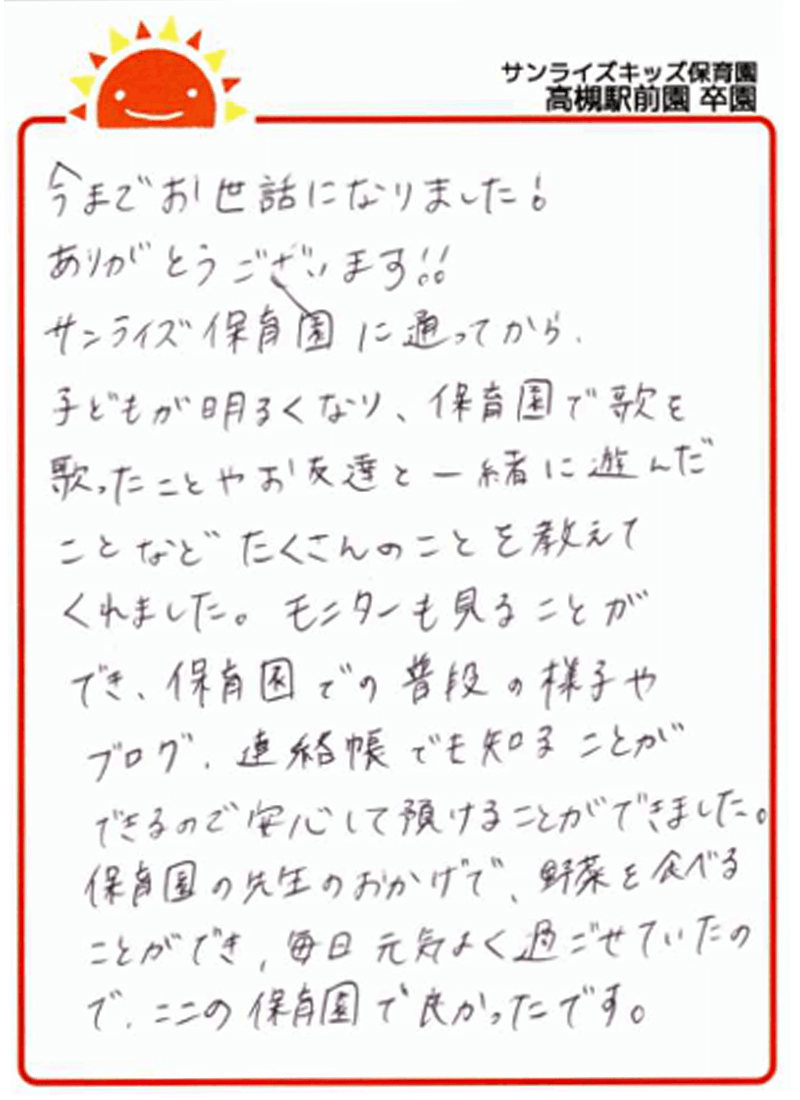 サンライズキッズ保育園
高槻駅前園 卒園
今までお世話になりました!
ありがとうございます!!
サンライズ保育園に通ってから、
子どもが明るくなり、保育園で歌を
歌ったことやお友達と一緒に遊んだ
ことなどたくさんのことを教えて
くれました。モニターも見ることが
でき、保育園での普段の様子や
ブログ、連絡帳でも知ることが
できるので安心して預けることができました。
保育園の先生のおかげで、野菜を食べる
ことができ、毎日元気よく過ごせていたの
で、ここの保育園で良かったです。